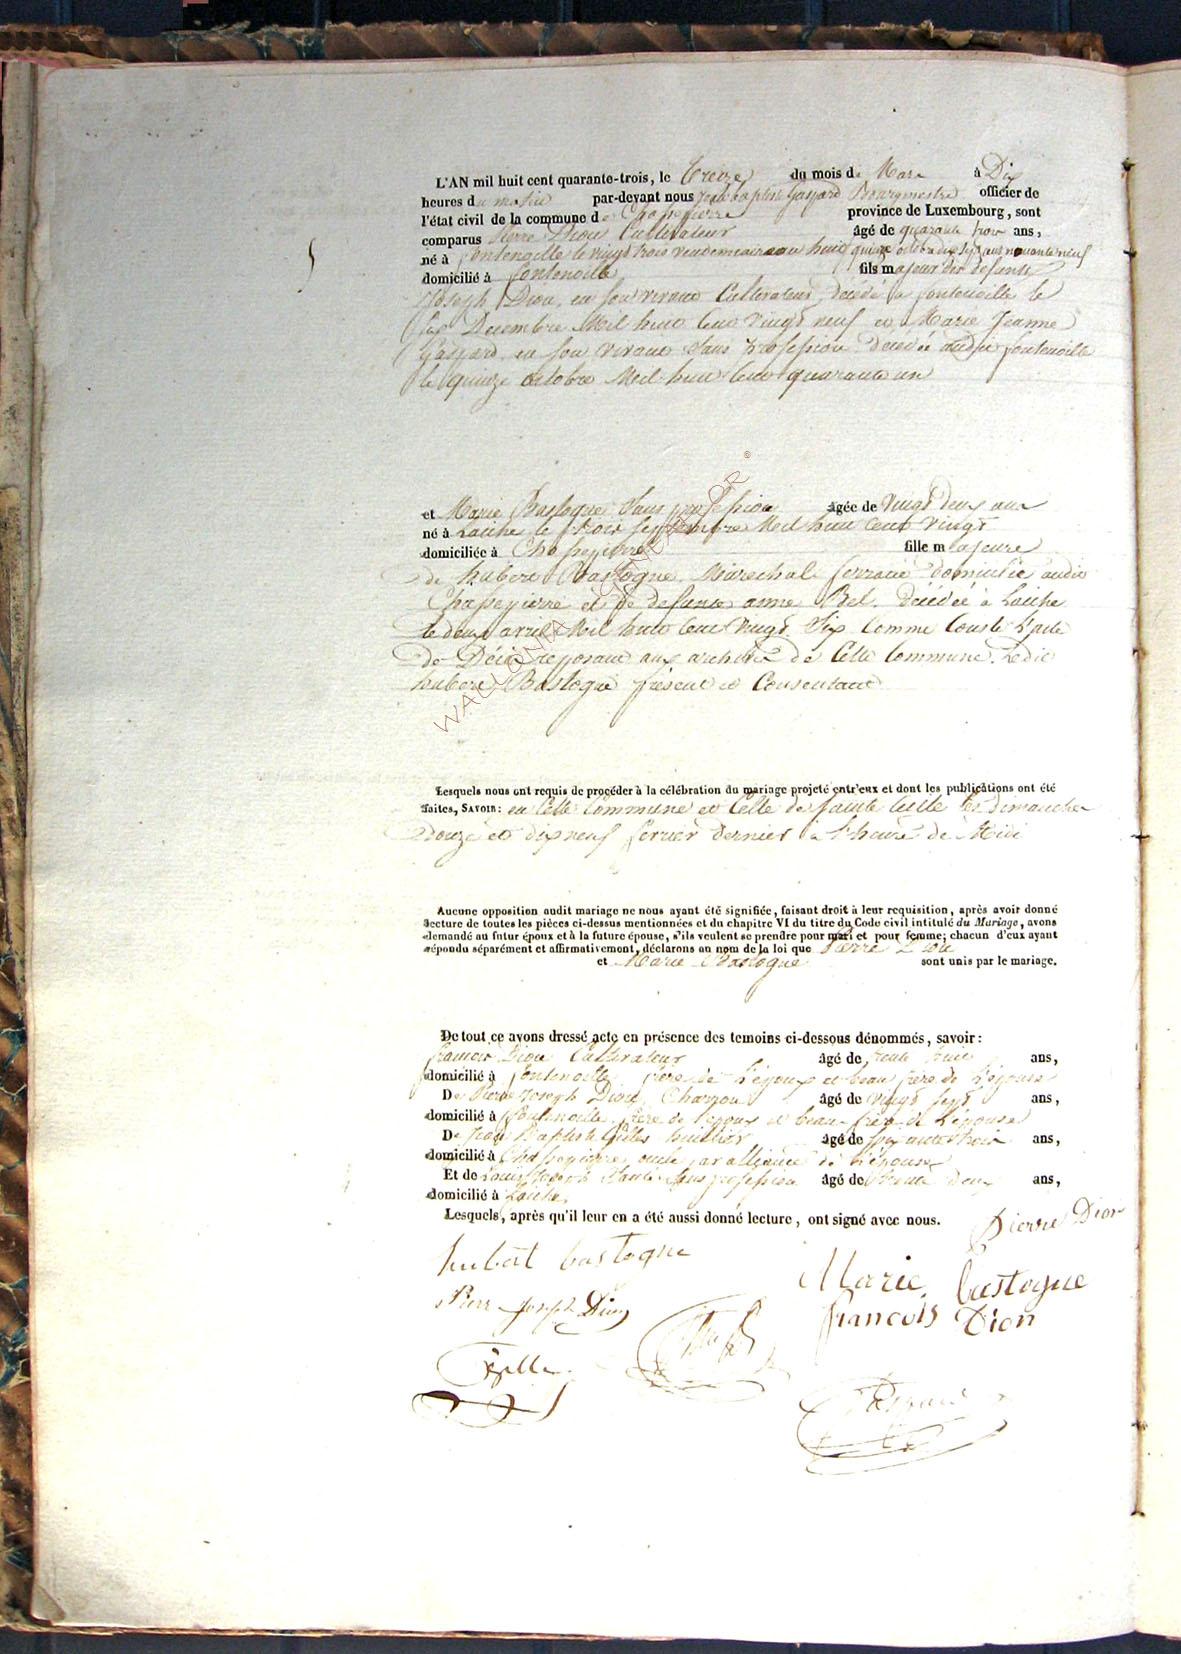 L'AN mil huit cent quarante-trois, le treize du mois de Mars à Dix
heures du matin par-devant nous Jean baptiste Gaspard Bourgmestre officier de
l'état civil de la commune de Chassepierre province de Luxembourg, sont
comparus Pierre Dion Cultivateur âgé de quarante trois ans,
né à fontenoille le vingt trois vendemiaire an huit quinze octobre dix sept cent nonante neuf
domicilié à fontenoille fils majeur des defunts
Joseph Dion, en son vivant Cultivateur, décédé à fontenoille le
six Decembre Mil huit Cent vingt neuf et Marie Jeanne
Gaspard en son vivant sans profession decedée audit fontenoille
le quinze octobre Mil huit Cent quarante un
et Marie Bastogne Sans profession âgée de vingt deux ans
né à Laiche le trois septembre Mil huit Cent vingt
domiciliée à Chassepierre fille majeure
de hubert Bastogne Marechal ferrant domicilié audit
Chassepierre et de defunte anne Bel. Décédée à Laiche
le deux avril Mil huit Cent vingt Six Comme Conste L'acte
de Décès reposant aux archives de Cette Commune. Ledit
hubert Bastogne présent et Consentant
Lesquels nous ont requis de procéder à la célébration du mariage projeté entr'eux et dont les publications ont été
faites, SAVOIR: en Cette Commune et Celle de Sainte Cecile les Dimanches
Douze et dix neuf fevrier dernier à l'heure de Midi
Aucune opposition audit mariage ne nous ayant été signifiée, faisant droit à leur requisition, après avoir donné
lecture de toutes les pièces ci-dessus mentionnées et du chapitre VI du titre du Code civil intitulé du Mariage, avons
demandé au futur époux et à la future épouse, s'ils veulent se prendre pour mari et pour femme; chacun d'eux ayant
répondu séparément et affirmativement, déclarons au nom de la loi que Pierre Dion
et Marie Bastogne sont unis par le mariage.
De tout ce avons dressé acte en présence des temoins ci-dessous dénommés, savoir:
francois Dion Cultivateur âgé de trente huit ans,
domicilié à fontenoille, frère de L'époux et beau frère de L'épouse
De Pierre Joseph Dion, Charron âgé de vingt sept ans,
domicilié à fontenoille, frère de l'epoux et beau frère de L'épouse
De Jean Baptiste Gilles huissier âgé de soixante trois ans,
domicilié à Chassepierre oncle par alliance de l'épouse
Et de Louis Joseph sans profession âgé de trente deux ans,
domicilié à Laiche
Lesquels, après qu'il leur en a été aussi donné lecture, ont signé avec nous. Pierre Dion
hubert bastogne
Marie bastogne
Pierr Joseph Dion
francois Dion
Gaspard
WALLONIA © GINCALOR ©